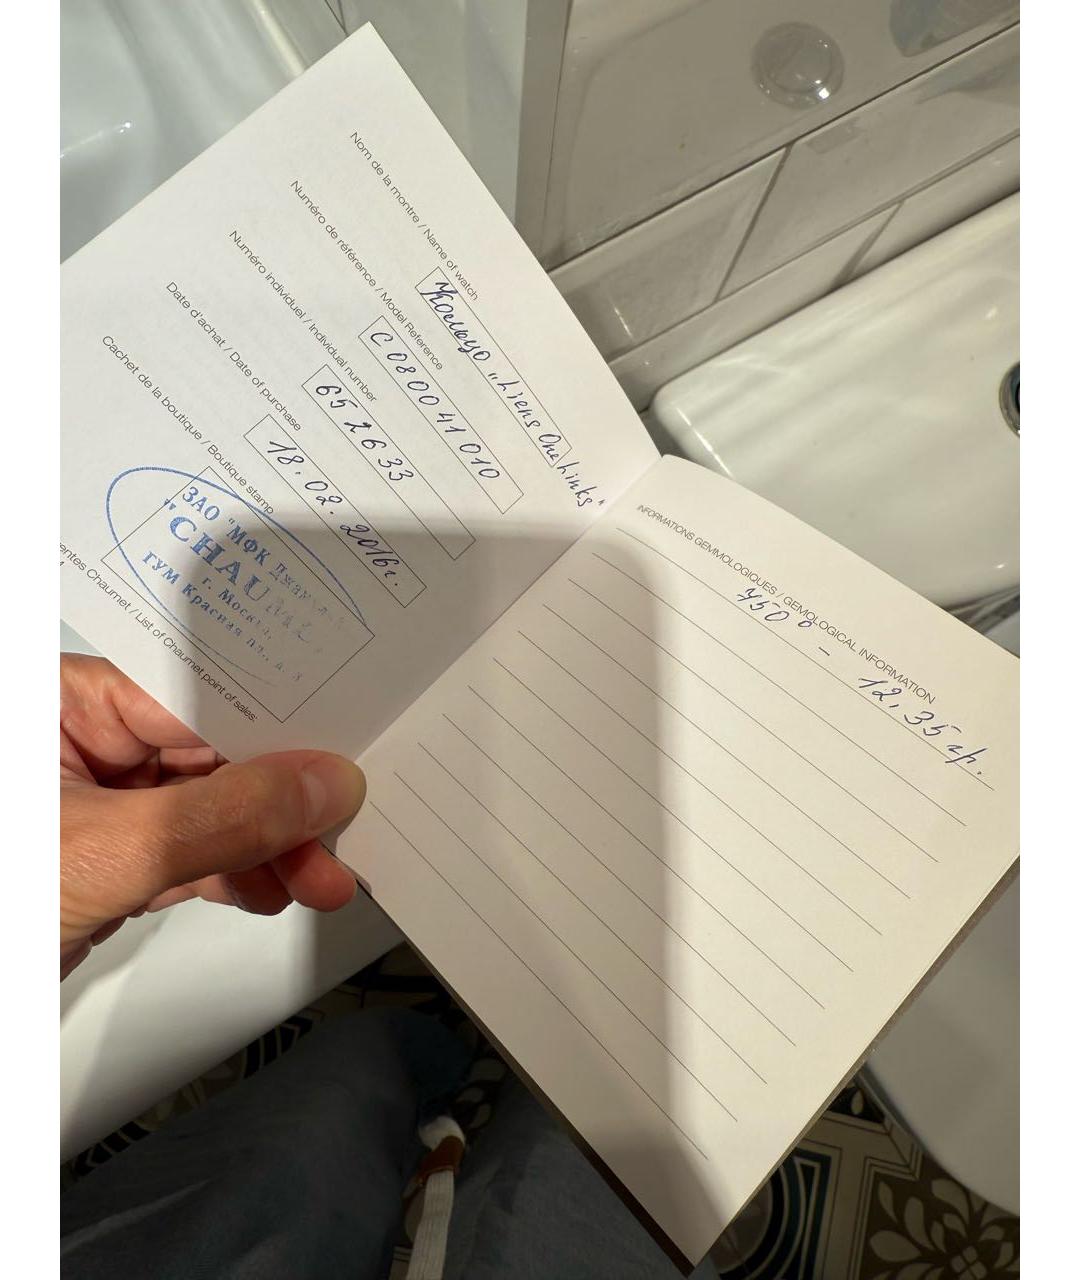 Nom de la montre / Name of watch
Кольцо „Liens One Links"
Numéro de référence / Model Reference
C 0800 41 010
Numéro individuel / Individual number
652633
Date d'achat / Date of purchase
18.02.2016г.
Cachet de la boutique / Boutique stamp
ЗАО "МФК
"CHAU
г. Москва,
ГУМ Красная пл.,
Chaumet / List of Chaumet point of sales:
INFORMATIONS GEMMOLOGIQUES / GEMOLOGICAL INFORMATION
750° - 12,35гр.